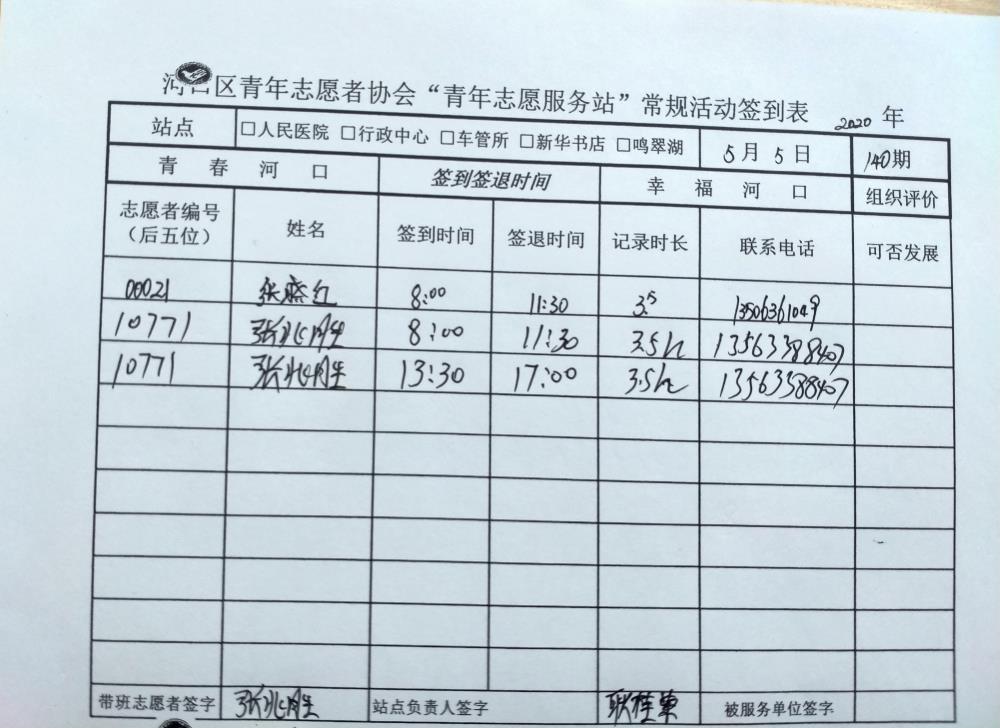 河口区青年志愿者协会“青年志愿服务站”常规活动签到表 2020 年
站点 □人民医院 □行政中心 □车管所 □新华书店 □鸣翠湖 5月5日 140期
青春河口 签到签退时间 幸福河口 组织评价
志愿者编号（后五位） 姓名 签到时间 签退时间 记录时长 联系电话 可否发展
00021 张燕红 8:00 11:30 3.5 13506361049
10771 张兆胜 8:00 11:30 3.5h 13563388407
10771 张兆胜 13:30 17:00 3.5h 13563388407
带班志愿者签字 张兆胜 站点负责人签字 耿桂 被服务单位签字